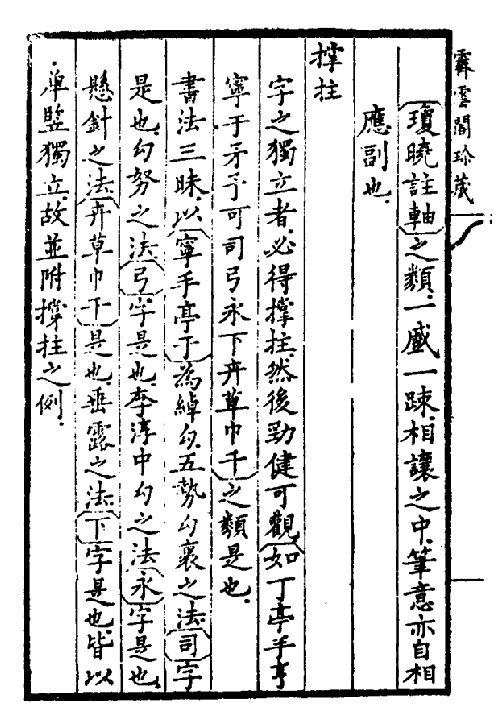 霏雲閣珍藏
瓊曉註軸之類一盛一疎相讓之中筆意亦自相
應副也
撑拄
字之獨立者必得撑拄然後勁健可觀如丁亭手亨
寧于矛予可司弓永下卉草巾千之類是也
書法三昧以寧手亭于為綽勾五勢勾裹之法司字
是也勾努之法弓字是也李淳中勾之法永字是也
懸針之法卉草巾干是也垂露之法下字是也皆以
單竪獨立故並附撑拄之例